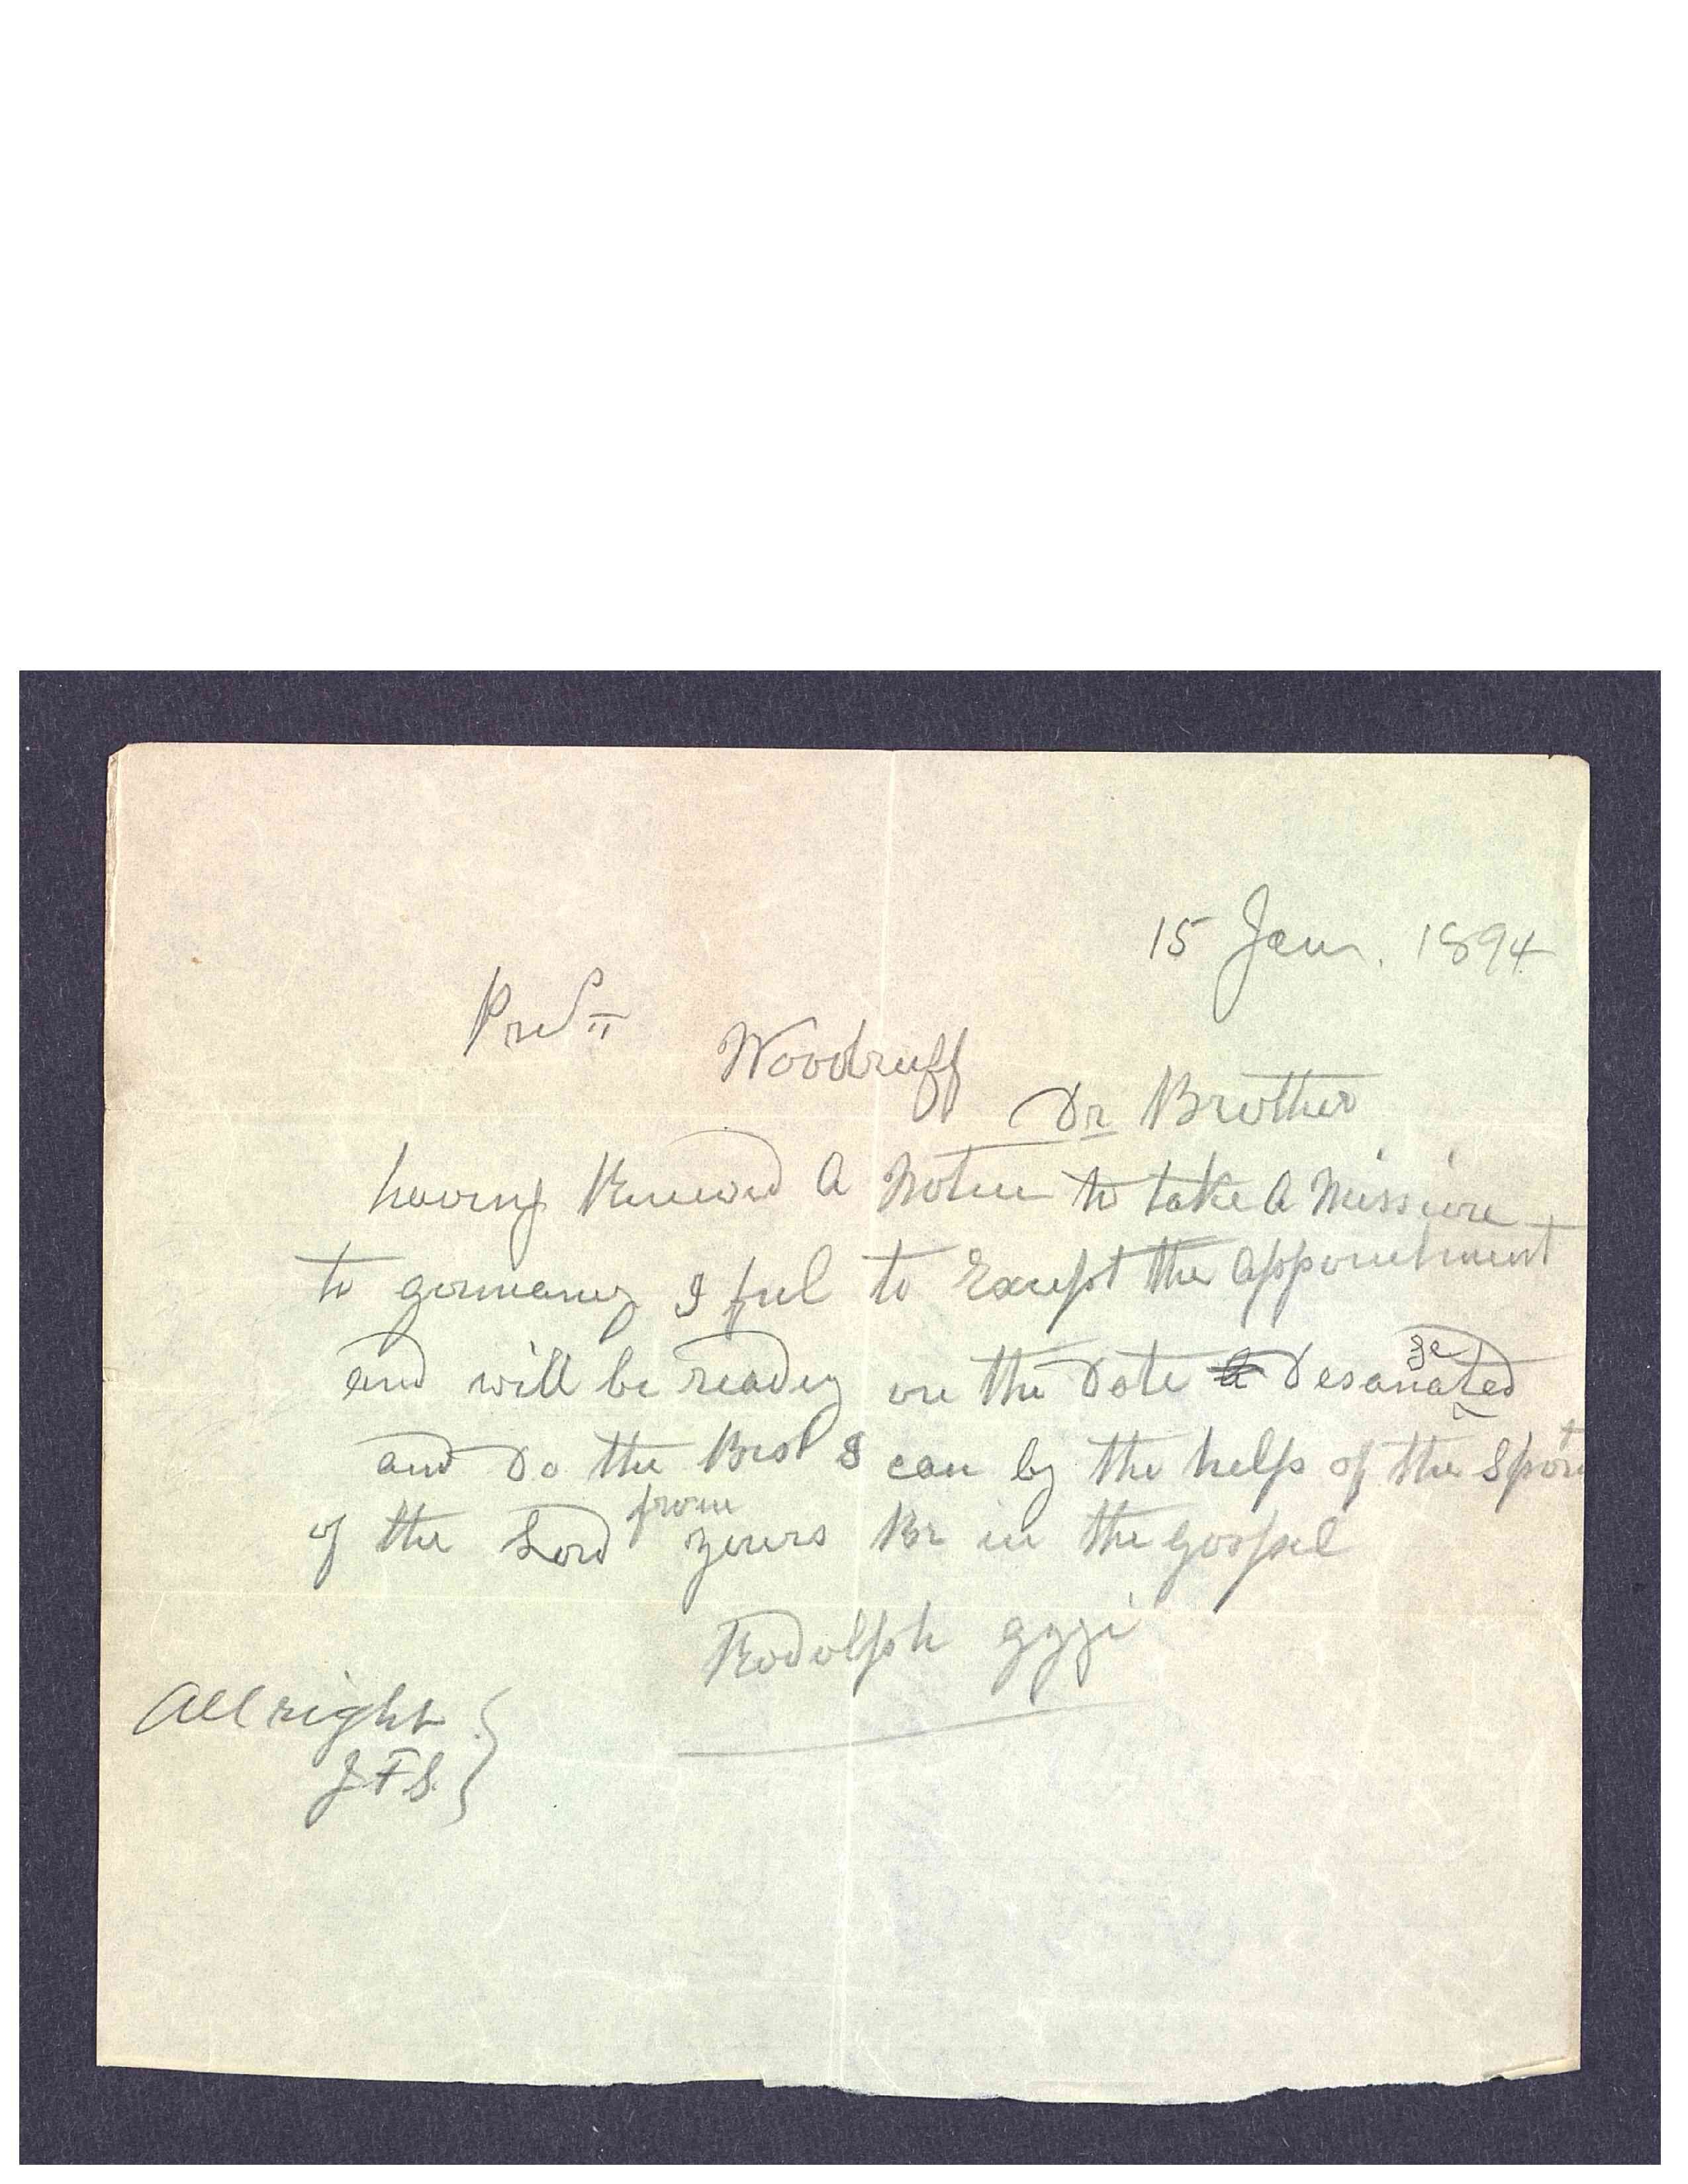 15 Jan. 1894
Prest
Woodruff
Dr Brother
having Received A Notice to take A Missione
to germaney I feel to Except the Appointment
and will be readey on the Date Desanated
ge
and Do the Best I can by the help of the Spirit
of the Lord from yours Br in the gospel
Rodolph gygi
All right
J F S.